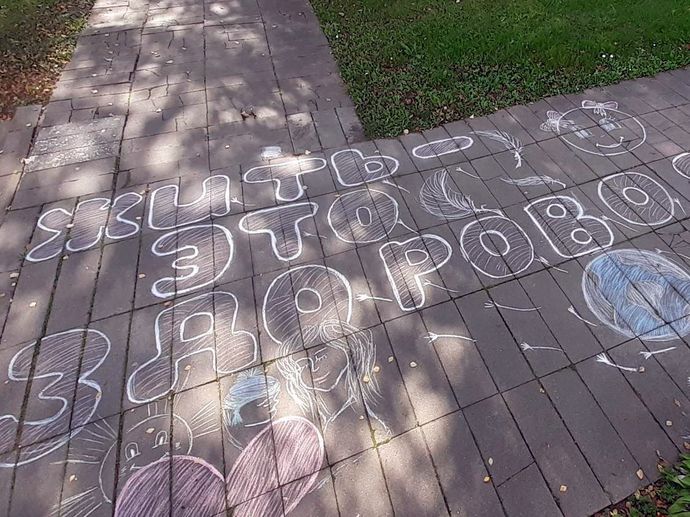 ЖИТЬ -
ЭТО
ЗДОРОВО